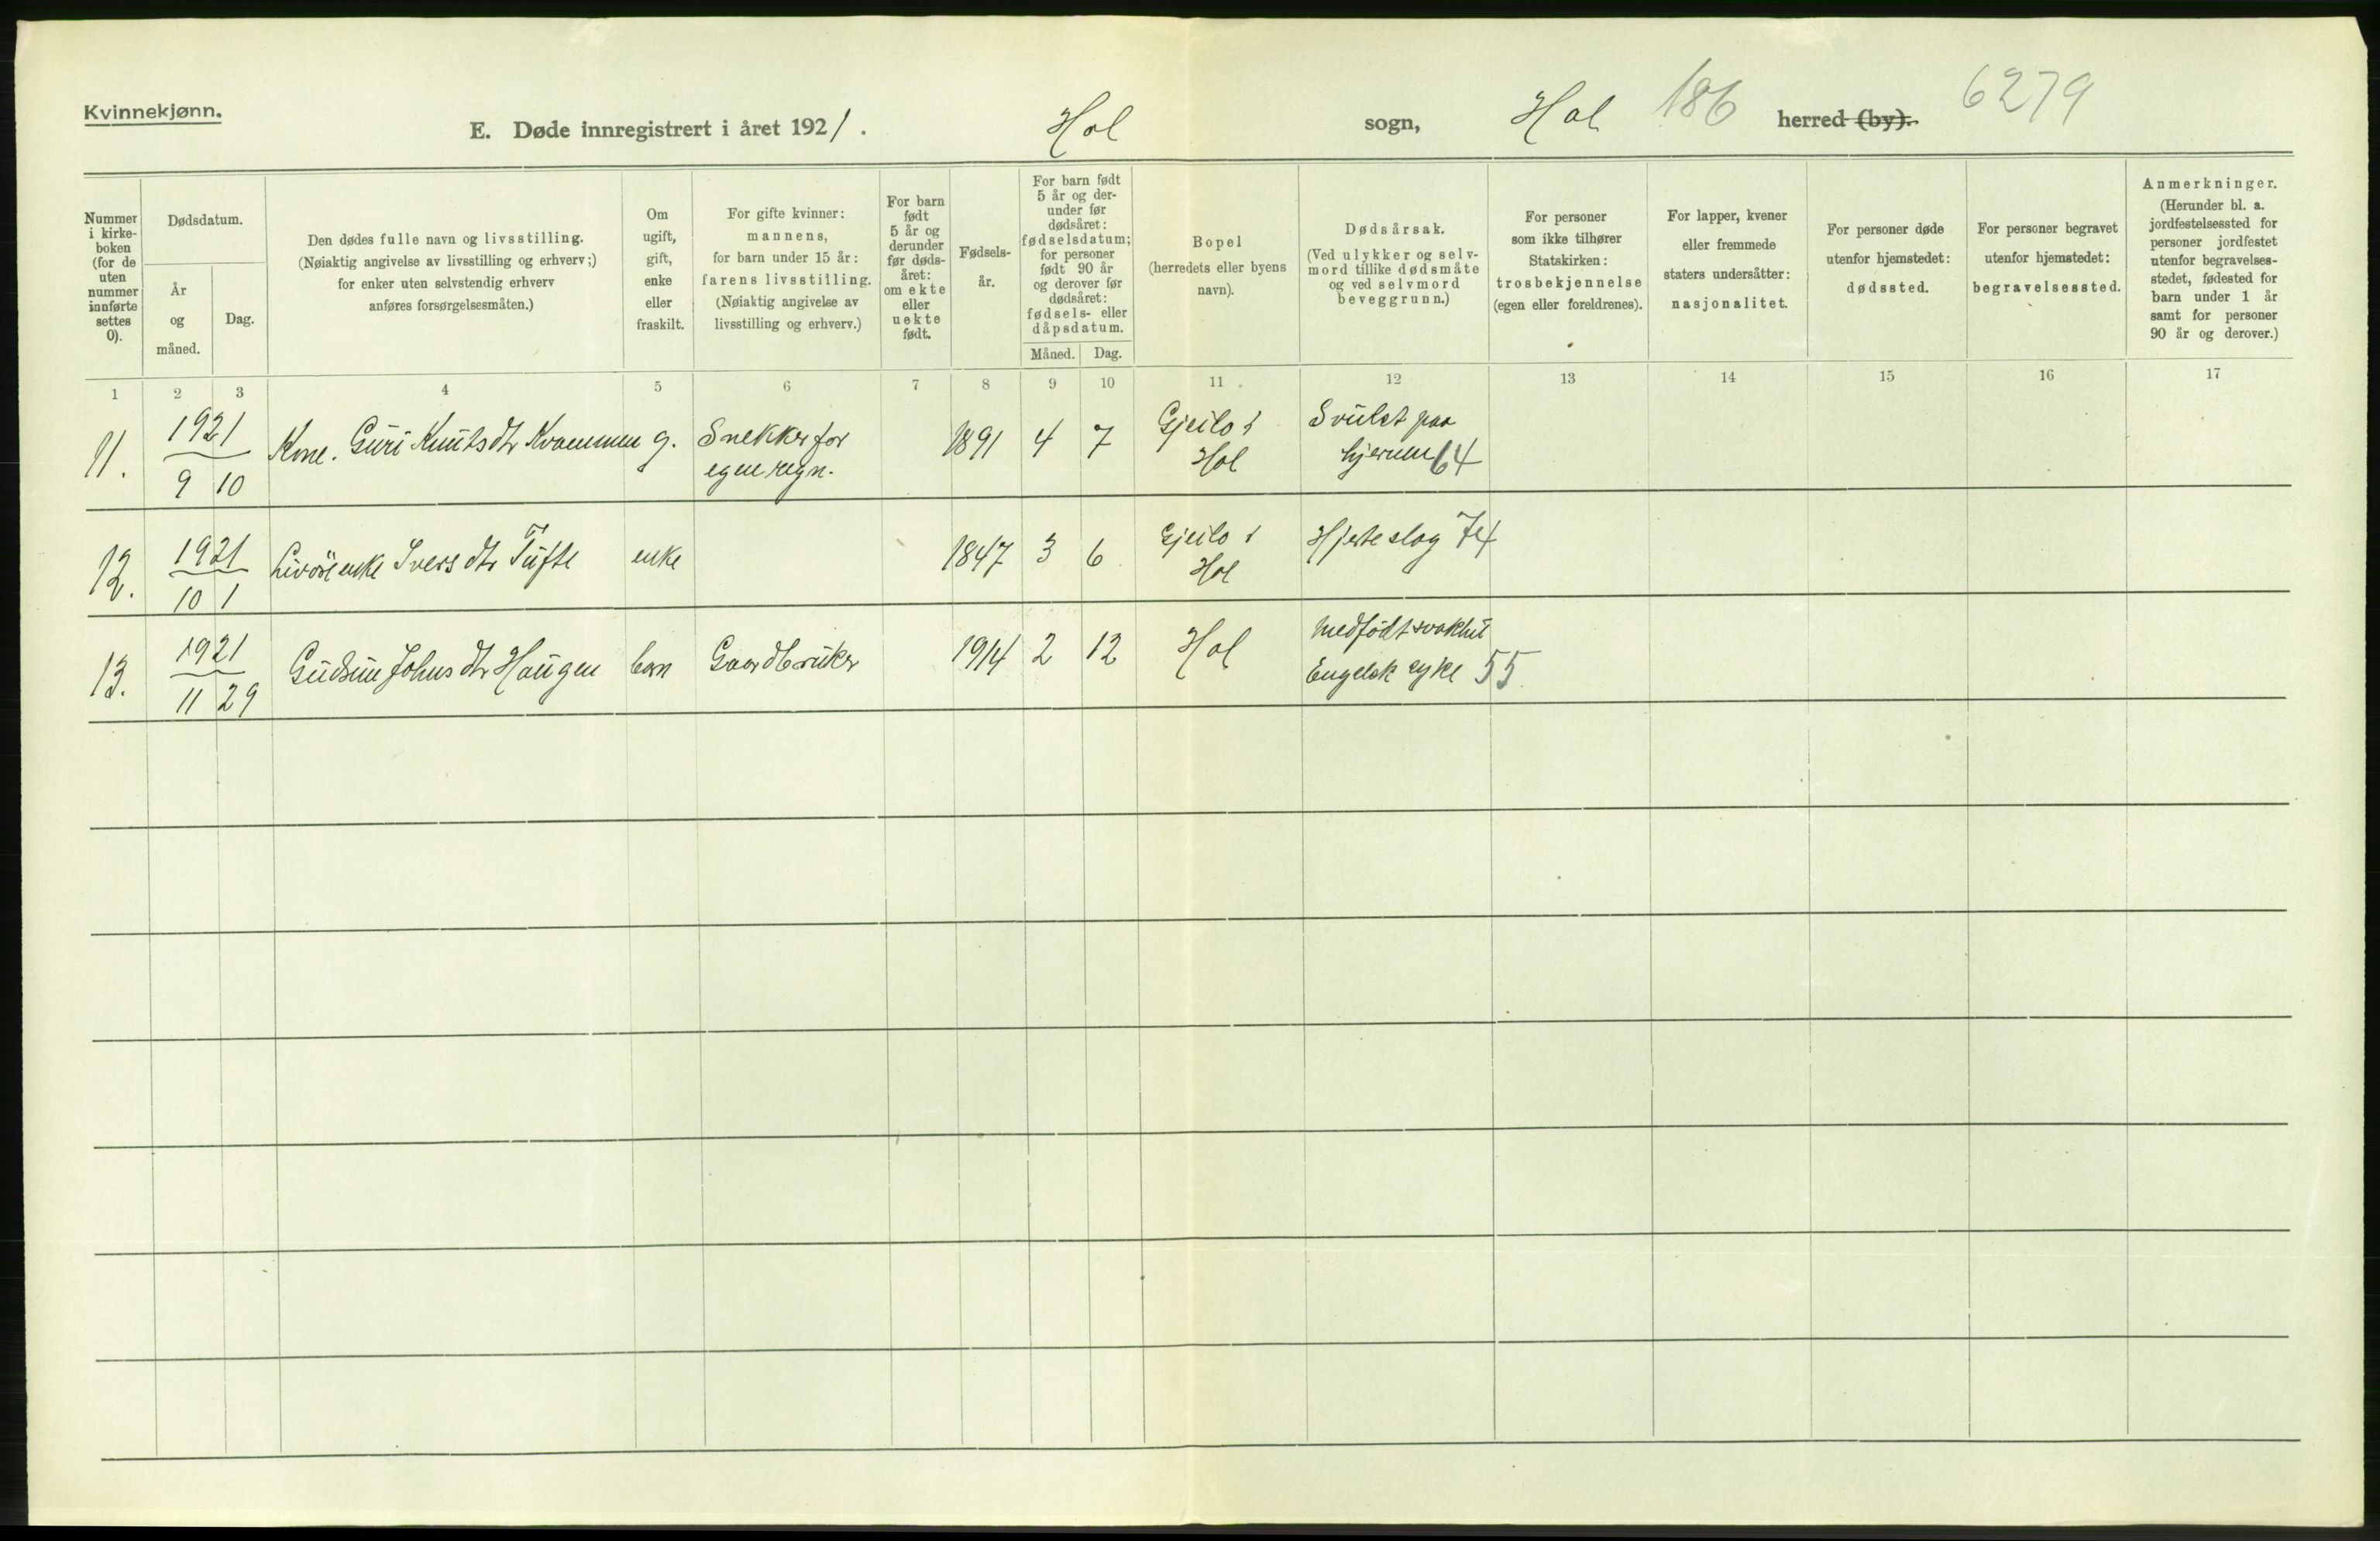 Kvinnekjønn.
E. Døde innregistrert i året 1921. Hol sogn, Hol 186 herred (by). 6279
Nummer i kirke-boken (for de uten nummer innførte settes 0).
Dødsdatum.
År og måned.
Dag.
Den dødes fulle navn og livsstilling.
(Nøiaktig angivelse av livsstilling og erhverv;)
for enker uten selvstendig erhverv
anføres forsørgelsesmåten.)
Om
ugift,
gift,
enke
eller
fraskilt.
For gifte kvinner:
mannens,
for barn under 15 år:
farens livsstilling.
(Nøiaktig angivelse av
livsstilling og erhverv.)
For barn
født
5 år og
derunder
før døds-
året:
om ekte
eller
uekte
født.
Fødsels-
år.
For barn født
5 år og der-
under før
dødsåret:
fødselsdatum;
for personer
født 90 år
og derover før
dødsåret:
fødsels- eller
dåpsdatum.
Måned. Dag.
Bopel
(herredets eller byens
navn).
Dødsårsak.
(Ved ulykker og selv-
mord tillike dødsmåte
og ved selvmord
beveggrunn.)
For personer
som ikke tilhører
Statskirken:
trosbekjennelse
(egen eller foreldrenes).
For lapper, kvener
eller fremmede
staters undersåtter:
nasjonalitet.
For personer døde
utenfor hjemstedet:
dødssted.
For personer begravet
utenfor hjemstedet:
begravelsessted.
Anmerkninger.
(Herunder bl. a.
jordfestelsessted for
personer jordfestet
utenfor begravelses-
stedet, fødested for
barn under 1 år
samt for personer
90 år og derover.)
1 2 3 4 5 6 7 8 9 10 11 12 13 14 15 16 17
11. 1921 9 10 Kone. Guri Knutsdtr Kvammen g. Snekker for egen regn. 1891 4 7 Gjeilo i Hol Svulst paa hjernen 64
12. 1921 10 1 enke Iversdtr Tufte enke 1847 3 6 Gjeilo i Hol Hjerteslag 74
13. 1921 11 29 Gudrun Johnsdtr Haugen barn Gaardbruker 1914 2 12 Hol Medfødt svakhet Engelsk syke 55